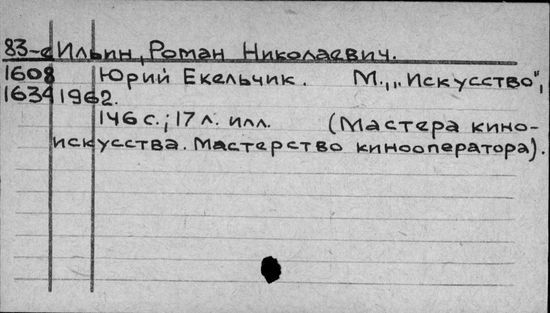 83-с Ильин, Роман Николаевич.
1608 Юрий Екельчик. М., „Искусство",
1634 1962.
146 с.; 17 л. илл. (Мастера кино-
искусства. Мастерство кинооператора).